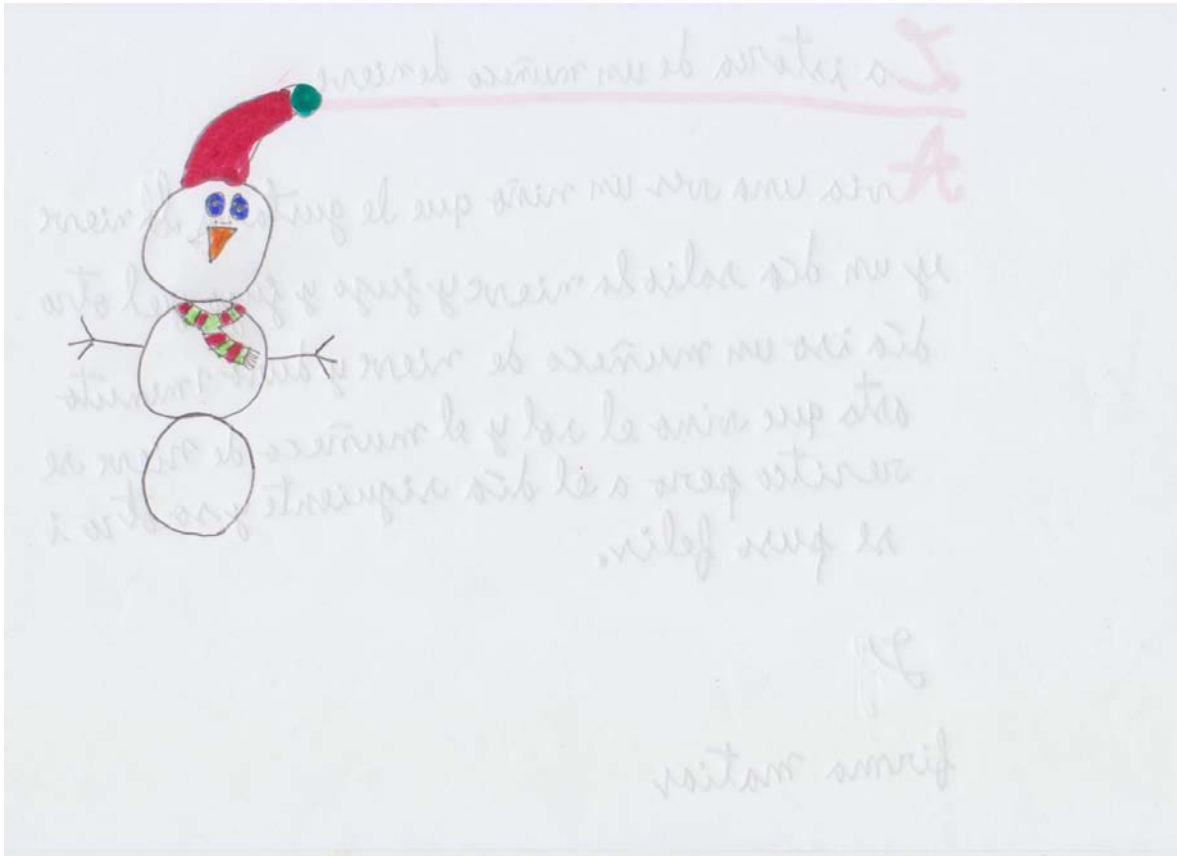 La istoria de un muñeco de nieve
Avia una ves un niño que le gusta el nieve
y un dia salio la nieve y jugo y jugo y el otro
dia iso un muñeco de nieve y duro minuto
asta que vino el sol y el muñeco de nieve se
pero a el dia siguiente iso otro i
se puso felis.
firma matias